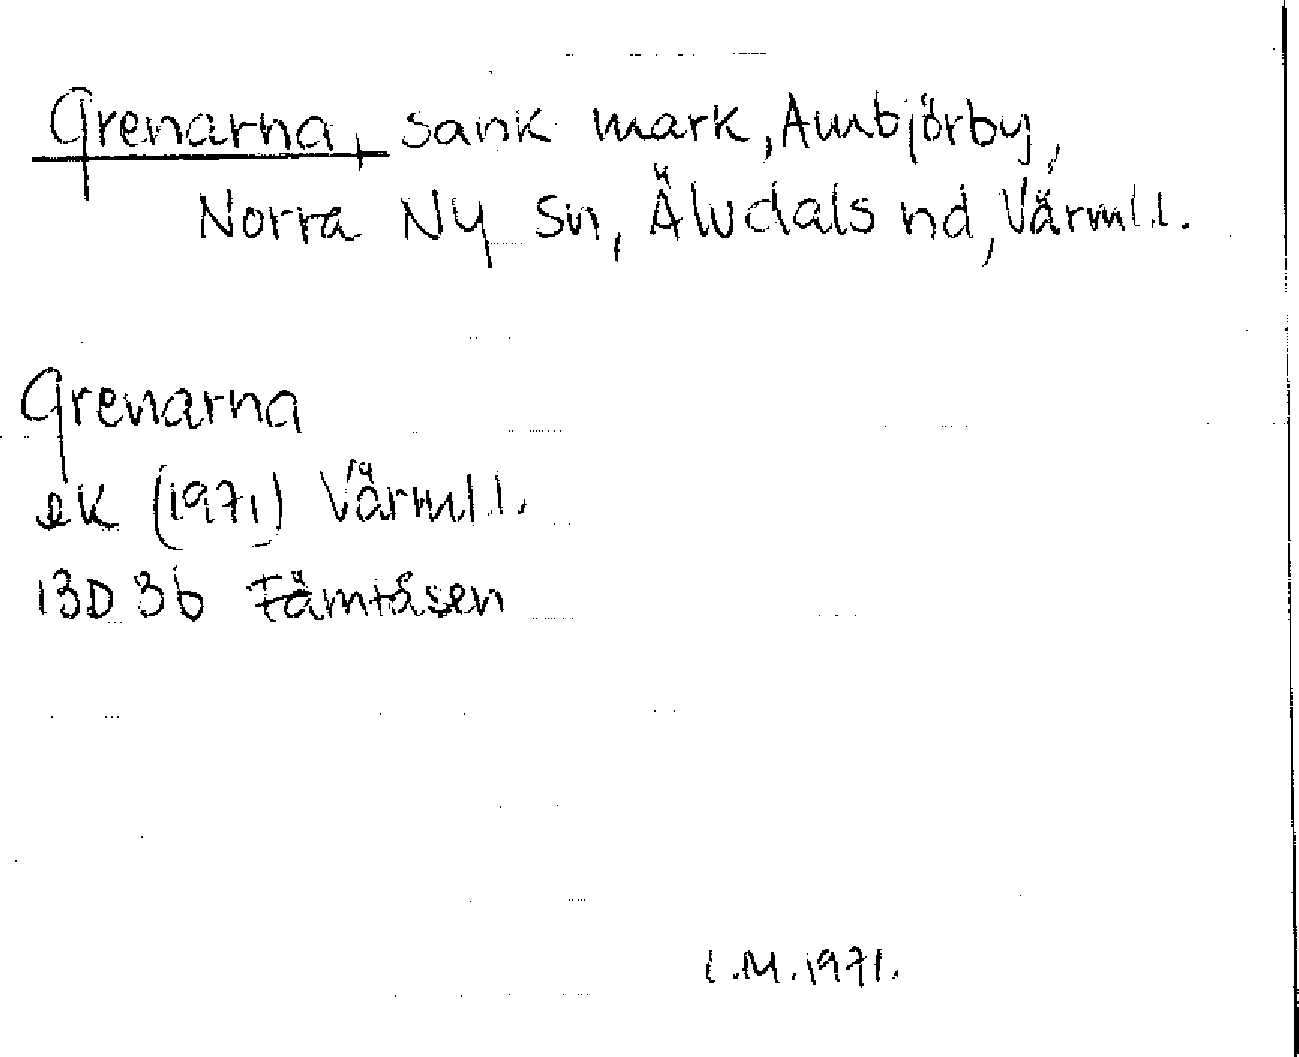 Grenarna, sank mark, Ambjörby,
Norra Ny sn, Älvdals hd, Värml.l.
Grenarna
ek (1971) Värml l.
13D 3b Fämtåsen
I.M. 1971.